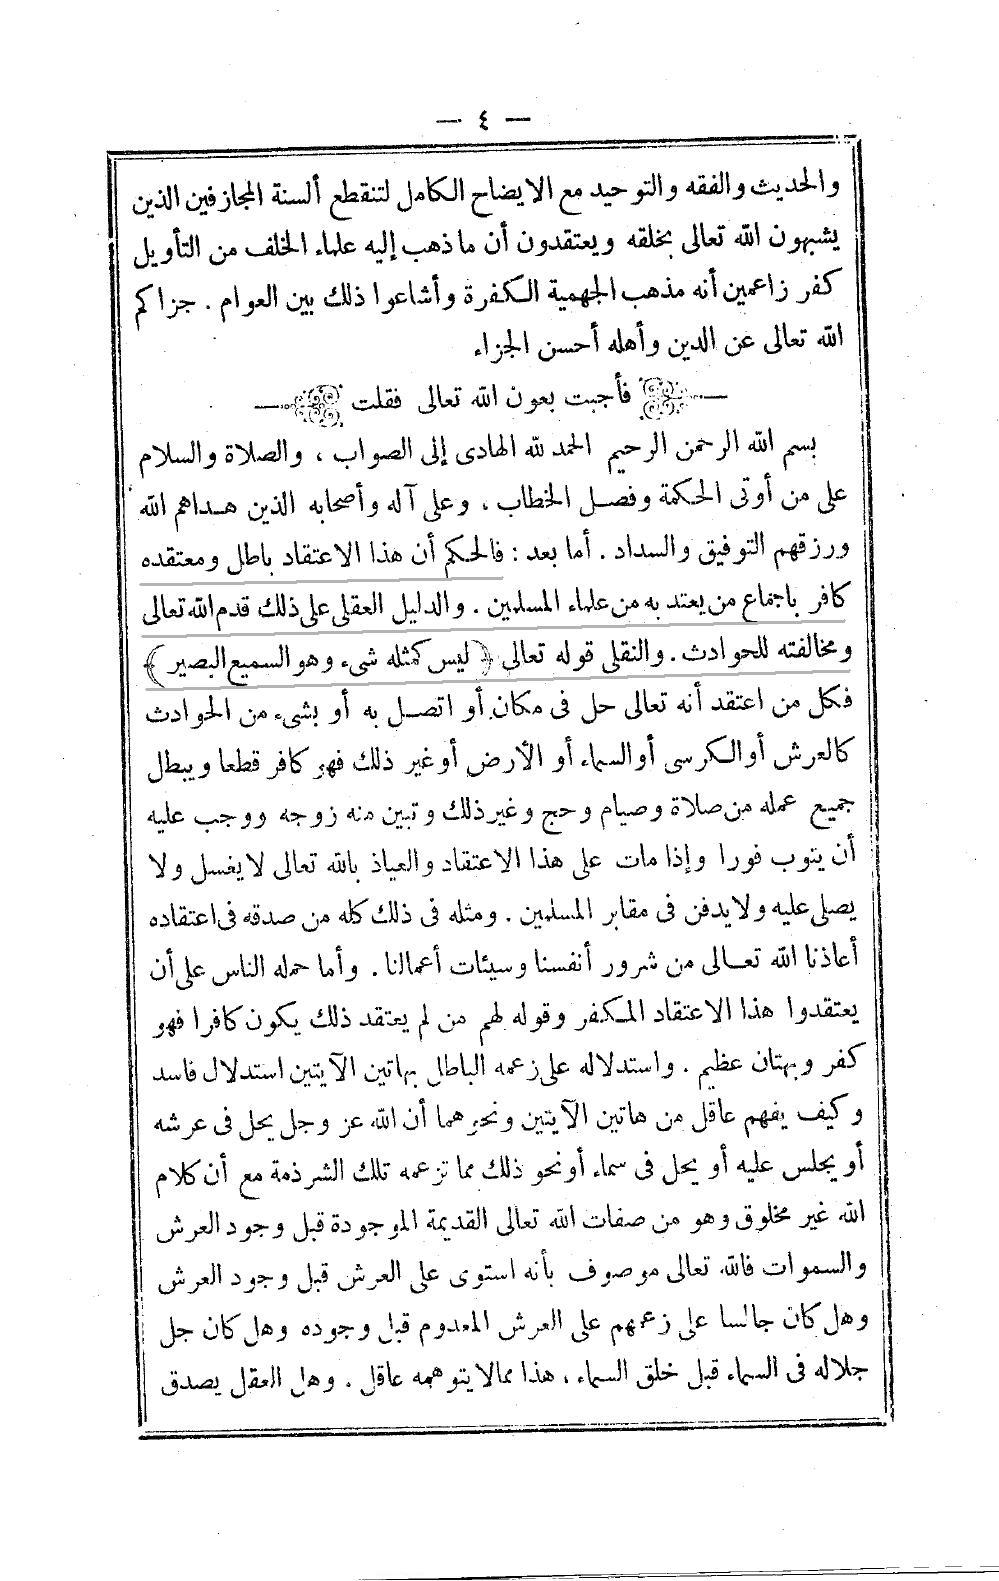 — ٤ —
والحديث والفقه والتوحيد مع الايضاح الكامل لتنقطع ألسنة المجازفين الذين
يشبهون الله تعالى بخلقه ويعتقدون أن ماذهب إليه علماء الخلف من التأويل
كفر زاعمين أنه مذهب الجهمية الكفرة وأشاعوا ذلك بين العوام . جزاكم
الله تعالى عن الدين وأهله أحسن الجزاء
فأجبت بعون الله تعالى فقلت
بسم الله الرحمن الرحيم الحمد لله الهادى إلى الصواب ، والصلاة والسلام
على من أوتى الحكمة وفصل الخطاب ، وعلى آله وأصحابه الذين هداهم الله
ورزقهم التوفيق والسداد . أما بعد : فالحكم أن هذا الاعتقاد باطل ومعتقده
كافر باجماع من يعتد به من علماء المسلمين . والدليل العقلى على ذلك قدم الله تعالى
ومخالفته للحوادث . والنقلى قوله تعالى (ليس كمثله شىء وهو السميع البصير)
فكل من اعتقد أنه تعالى حل فى مكان أو اتصل به أو بشىء من الحوادث
كالعرش أو الكرسى أو السماء أو الأرض أو غير ذلك فهو كافر قطعا ويبطل
جميع عمله من صلاة وصيام وحج وغير ذلك وتبين منه زوجه ووجب عليه
أن يتوب فورا وإذا مات على هذا الاعتقاد والعياذ بالله تعالى لا يغسل ولا
يصلى عليه ولا يدفن فى مقابر المسلمين . ومثله فى ذلك كله من صدقه فى اعتقاده
أعاذنا الله تعالى من شرور أنفسنا وسيئات أعمالنا . وأما حمله الناس على أن
يعتقدوا هذا الاعتقاد المكفر وقوله لهم من لم يعتقد ذلك يكون كافرا فهو
كفر وبهتان عظيم . واستدلاله على زعمه الباطل بهاتين الآيتين استدلال فاسد
وكيف يفهم عاقل من هاتين الآيتين ونحوهما أن الله عز وجل يحل فى عرشه
أو يجلس عليه أو يحل فى سماء أو نحو ذلك مما تزعمه تلك الشرذمة مع أن كلام
الله غير مخلوق وهو من صفات الله تعالى القديمة الموجودة قبل وجود العرش
والسموات فالله تعالى موصوف بأنه استوى على العرش قبل وجود العرش
وهل كان جالسا على زعمهم على العرش المعدوم قبل وجوده وهل كان جل
جلاله فى السماء قبل خلق السماء ، هذا مما لا يتوهمه عاقل . وهل العقل يصدق